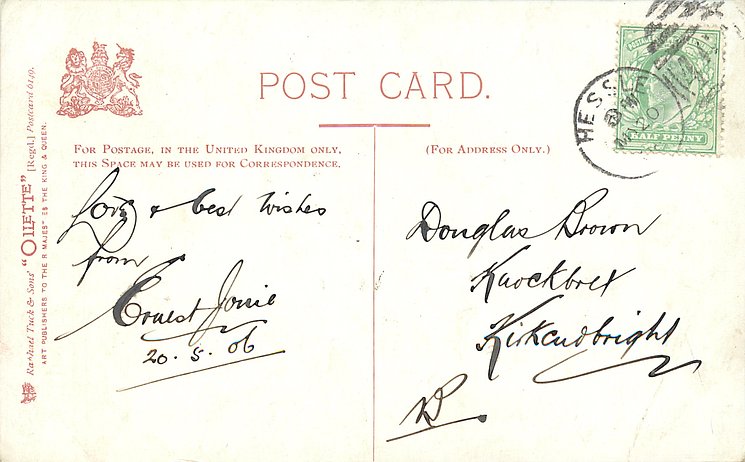 POST CARD.
FOR POSTAGE, IN THE UNITED KINGDOM ONLY,
THIS SPACE MAY BE USED FOR CORRESPONDENCE.
(FOR ADDRESS ONLY.)
Raphael Tuck & Sons' "OILETTE" [Regd.] Postcard 6149.
ART PUBLISHERS TO THE
MAJES
ES THE KING & QUEEN.
HESSLE
20
HALF PENNY
Love & best wishes
from
Ernest
20.5.06
Douglas Brown
Knockbrex
Kirkcudbright